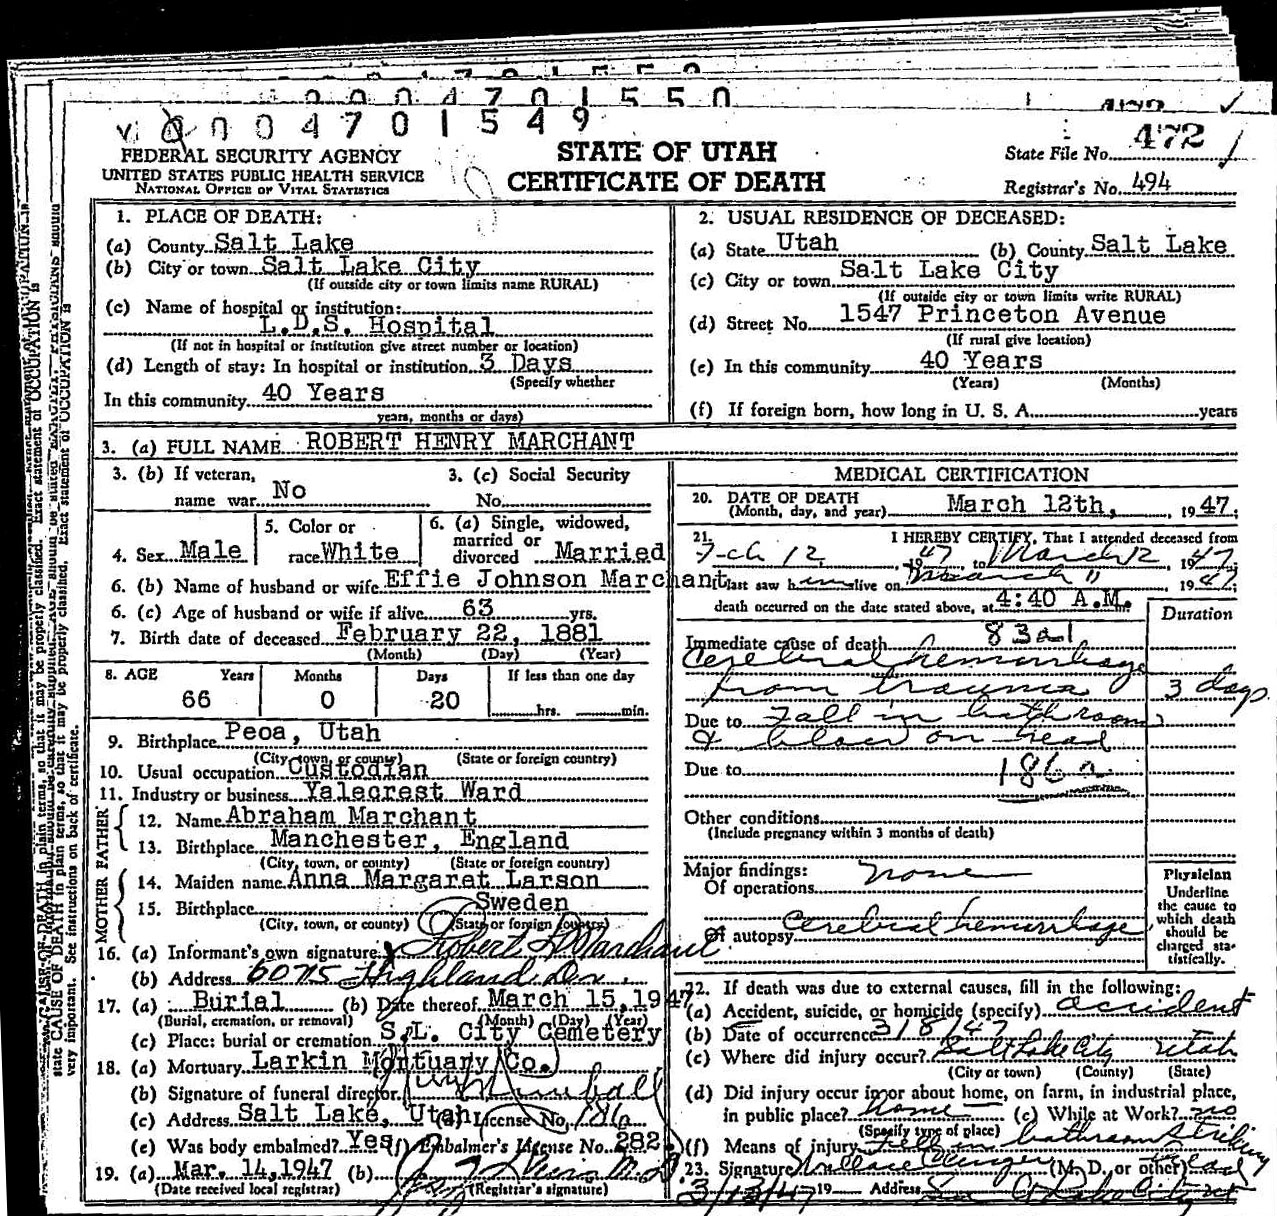 0004701550
0004701549
FEDERAL SECURITY AGENCY
UNITED STATES PUBLIC HEALTH SERVICE
NATIONAL OFFICE OF VITAL STATISTICS
STATE OF UTAH
CERTIFICATE OF DEATH
State File No. 472
Registrar's No. 494
1. PLACE OF DEATH:
(a) County Salt Lake
(b) City or town Salt Lake City
(If outside city or town limits name RURAL)
(c) Name of hospital or institution:
L.D.S. Hospital
(If not in hospital or institution give street number or location)
(d) Length of stay: In hospital or institution 3 Days
(Specify whether
In this community 40 Years
years, months or days)
2. USUAL RESIDENCE OF DECEASED:
(a) State Utah (b) County Salt Lake
(c) City or town Salt Lake City
(If outside city or town limits write RURAL)
(d) Street No. 1547 Princeton Avenue
(If rural give location)
(e) In this community 40 Years
(Years) (Months)
(f) If foreign born, how long in U. S. A. years
3. (a) FULL NAME ROBERT HENRY MARCHANT
3. (b) If veteran,
name war No
3. (c) Social Security
No.
4. Sex Male
5. Color or
race White
6. (a) Single, widowed,
married or
divorced Married
6. (b) Name of husband or wife Effie Johnson Marchant
6. (c) Age of husband or wife if alive 63 yrs.
7. Birth date of deceased February 22, 1881
(Month) (Day) (Year)
8. AGE Years Months Days If less than one day
66 0 20 hrs. min.
9. Birthplace Peoa, Utah
(City town, or county) (State or foreign country)
10. Usual occupation Custodian
11. Industry or business Yalecrest Ward
FATHER
12. Name Abraham Marchant
13. Birthplace Manchester, England
(City, town, or county) (State or foreign country)
MOTHER
14. Maiden name Anna Margaret Larson
15. Birthplace Sweden
(City, town, or county) (State or foreign country)
16. (a) Informant's own signature Robert Marchant
(b) Address Highland Dr.
17. (a) Burial (b) Date thereof March 15, 1947
(Burial, cremation, or removal) (Month) (Day) (Year)
(c) Place: burial or cremation S.L. City Cemetery
18. (a) Mortuary Larkin Mortuary Co.
(b) Signature of funeral director
(c) Address Salt Lake, Utah License No. 186
(e) Was body embalmed? Yes (f) Embalmer's License No. 282
19. (a) Mar. 14,1947 (b)
(Date received local registrar) (Registrar's signature)
MEDICAL CERTIFICATION
20. DATE OF DEATH
(Month, day, and year) March 12th, 1947;
21. I HEREBY CERTIFY, That I attended deceased from
12, 1947 to March 12 1947;
I last saw him alive on March 11 1947;
death occurred on the date stated above, at 4:40 A.M.
Duration
Immediate cause of death 83a1
Cerebral hemorrhage
from trauma 3 days
Due to Fall in bathroom
& blow on head
Due to 186a
Other conditions
(Include pregnancy within 3 months of death)
Major findings:
Of operations none
Of autopsy Cerebral hemorrhage
Physician
Underline
the cause to
which death
should be
charged sta-
tistically.
22. If death was due to external causes, fill in the following:
(a) Accident, suicide, or homicide (specify) accident
(b) Date of occurrence 3/8/47
(c) Where did injury occur? Salt Lake City Utah
(City or town) (County) (State)
(d) Did injury occur in or about home, on farm, in industrial place,
in public place? home (e) While at Work? no
(Specify type of place)
(f) Means of injury Fell in bathroom striking
head
23. Signature Wallace (M. D., or other)
3/13/47 19 Address